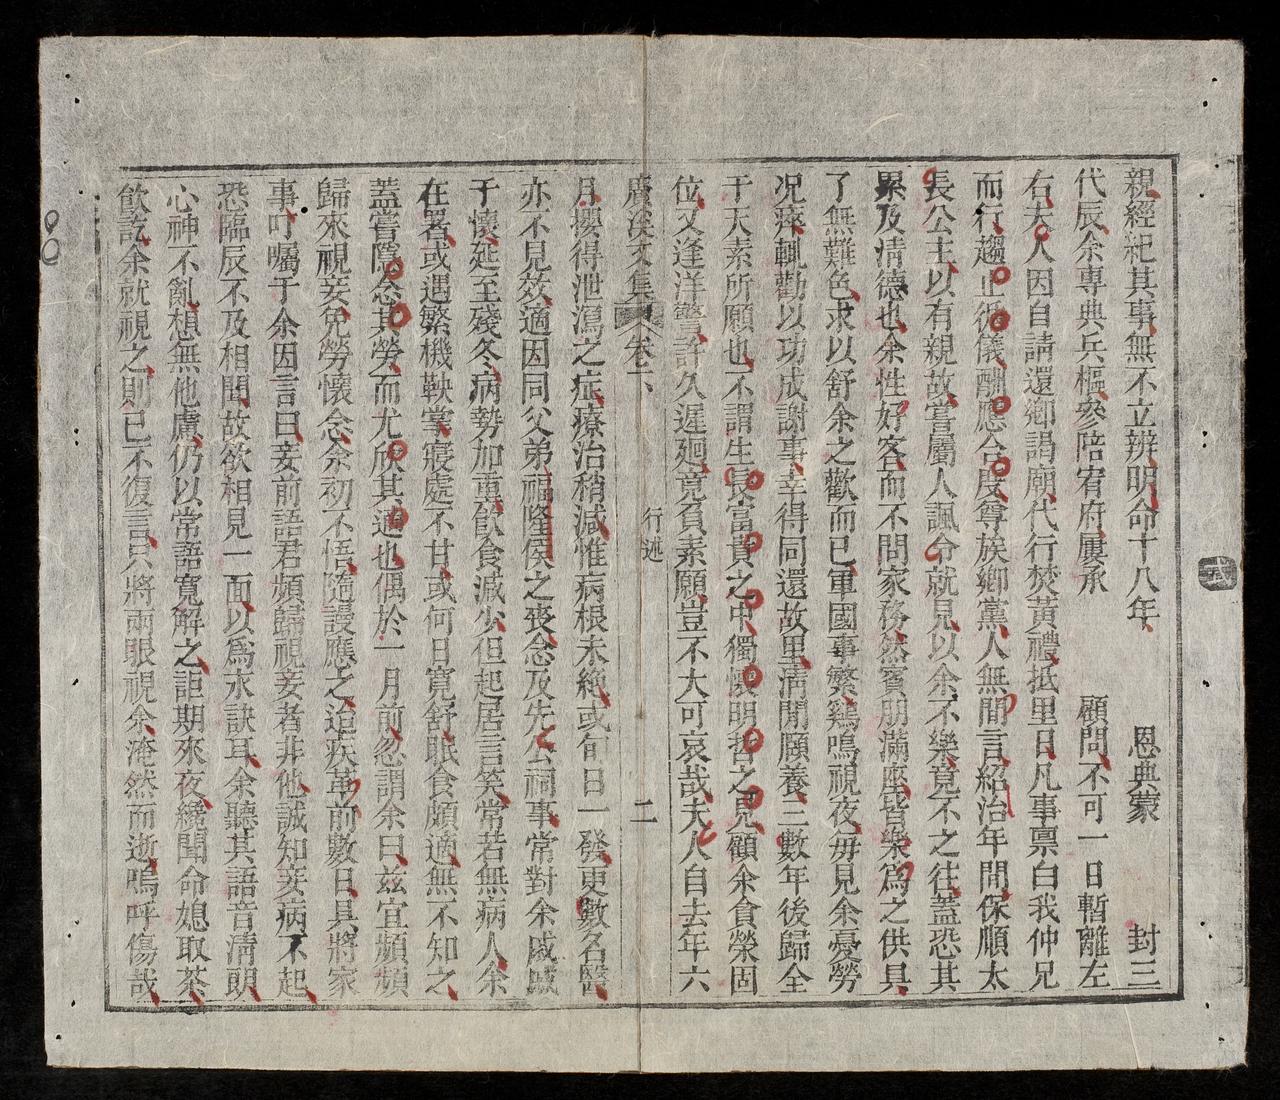 親經紀其事無不立辨明命十八年 恩典蒙 封三
代辰余專典兵樞參陪宥府屢承 顧問不可一日暫離左
右夫人因自請還鄉謁廟代行焚黃禮抵里日凡事稟白我仲兄
而行趨止循儀酬應合度尊族鄉黨人無間言紹治年間保順太
長公主以有親故嘗屬人諷令就見以余不樂竟不之往蓋恐其
累及清德也余性好客而不問家務然賓朋滿座皆樂為之供具
了無難色求以舒余之歡而已軍國事繁鷄鳴視夜毋見余憂勞
况瘁輒勸以功成謝事幸得同還故里清閒願養三數年後歸全
于天素所願也不謂生長富貴之中獨懷明哲之見顧余貪榮固
位又逢洋警許久遲廻竟負素願豈不大可哀哉夫人自去年六
廣溪文集 卷六 行述 二
月攖得泄瀉之症療治稍減惟病根未絶或旬日一發更數名醫
亦不見效適因同父弟福隆侯之喪念及先公祠事常對余戚戚
于懷延至殘冬病勢加重飮食減少但起居言笑常若無病人余
在署或遇繁機鞅掌寢處不甘或何日寬舒眠食頗適無不知之
蓋嘗隱念其勞而尤欣其適也偶於一月前忽謂余曰兹宜頻頻
歸來視妾免勞懷念余初不悟隨謾應之迨疾革前數日具將家
事叮囑于余因言曰妾前語君頻歸視妾者非他誠知妾病不起
恐臨辰不及相聞故欲相見一面以爲永訣耳余聽其語音清朗
心神不亂想無他慮仍以常語寬解之詎期來夜纔聞命媳取茶
飮訖余就視之則已不復言只將兩眼視余淹然而逝嗚呼傷哉